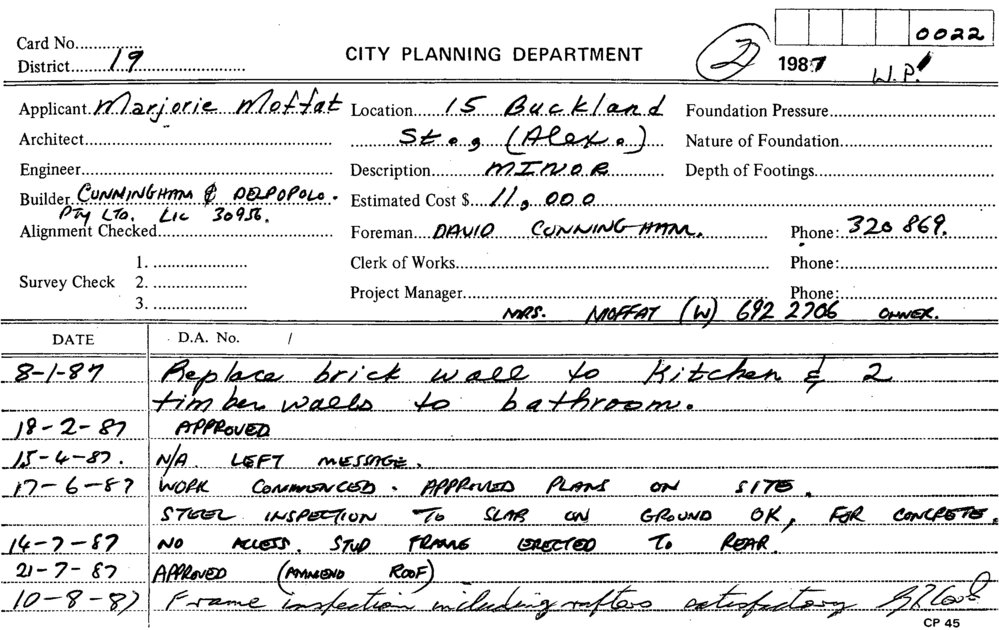 0022
Card No..............
District........19........................
CITY PLANNING DEPARTMENT
2
1987
W.P.
Applicant. Marjorie Moffat Location.......15 Buckland Foundation Pressure................................
Architect.................................................. St., (Alex.) Nature of Foundation..............................
Engineer................................................... Description..........MINOR Depth of Footings..................................
Builder CUNNINGHAM & DELPOPOLO. Estimated Cost $ 11,000
PTY LTD. LIC 30956.
Alignment Checked.................................. Foreman....DAVID CUNNINGHAM. Phone: 320 869.
1. ...................... Clerk of Works................................................................ Phone:..............................
Survey Check 2. ......................
3. ...................... Project Manager............................................................ Phone:..............................
MRS. MOFFAT (W) 692 2706 OWNER.
DATE D.A. No. /
8-1-87 Replace brick wall to Kitchen & 2
timber walls to bathroom.
18-2-87 APPROVED
15-4-87. N/A. LEFT MESSAGE.
17-6-87 WORK COMMENCED. APPROVED PLANS ON SITE.
STEEL INSPECTION TO SLAB ON GROUND OK, FOR CONCRETE.
14-7-87 NO ACCESS. STUD FRAME ERECTED TO REAR.
21-7-87 APPROVED (AMMEND ROOF)
10-8-87 Frame inspection including rafters satisfactory
CP 45